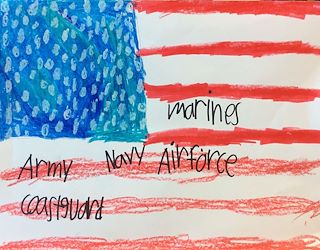 marines
Army Navy Airforce
coastguard